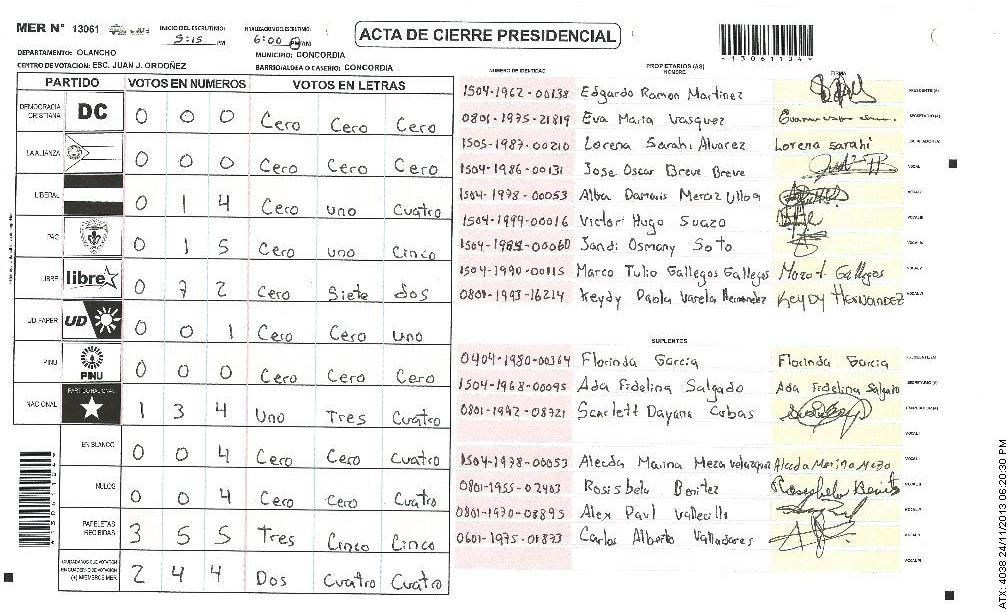 MER N° 13061 INICIO DEL ESCRUTINIO: 5:15 PM FINALIZACION DEL ESCRUTINIO: 6:00 PM AM
ACTA DE CIERRE PRESIDENCIAL
130611044
DEPARTAMENTO: OLANCHO MUNICIPIO: CONCORDIA
CENTRO DE VOTACION: ESC. JUAN J. ORDOÑEZ BARRIO/ALDEA O CASERIO: CONCORDIA
PARTIDO VOTOS EN NUMEROS VOTOS EN LETRAS
DEMOCRACIA CRISTIANA DC 0 0 0 Cero Cero Cero
LA ALIANZA 0 0 0 Cero Cero Cero
LIBERAL 0 1 4 Cero uno Cuatro
PAC 0 1 5 Cero uno Cinco
LIBRE libre 0 7 2 Cero Siete dos
UD-FAPER UD 0 0 1 Cero Cero uno
PINU PINU 0 0 0 Cero Cero Cero
NACIONAL PARTIDO NACIONAL 1 3 4 Uno Tres Cuatro
EN BLANCO 0 0 4 Cero Cero Cuatro
NULOS 0 0 4 Cero Cero Cuatro
PAPELETAS RECIBIDAS 3 5 5 Tres Cinco Cinco
CIUDADANOS QUE VOTARON EN CUADERNO DE VOTACION (+) MIEMBROS MER 2 4 4 Dos Cuatro Cuatro
NUMERO DE IDENTIDAD PROPIETARIOS (AS) NOMBRE FIRMA
1504-1962-00138 Edgardo Ramon Martinez PRESIDENTE (A)
0801-1975-21819 Eva Maria Vasquez SECRETARIO (A)
1505-1987-00210 Lorena Sarahi Alvarez Lorena Sarahi ESCRUTADOR (A)
1504-1986-00131 Jose Oscar Breve Breve VOCAL I
1504-1978-00053 Alba Damaris Meraz Ulloa VOCAL II
1504-1994-00016 Victor Hugo Suazo VOCAL III
1504-1984-00060 Jandi Osmany Soto VOCAL IV
1504-1990-00115 Marco Tulio Gallegos Gallegos Marco t. Gallegos VOCAL V
0801-1993-16214 Keydy Paola Varela Hernandez KEYDY HERNANDEZ VOCAL VI
SUPLENTES
0404-1980-00364 Florinda Garcia Florinda Garcia PRESIDENTE (A)
1504-1968-00095 Ada Fidelina Salgado Ada Fidelina Salgado SECRETARIO (A)
0801-1992-08721 Scarlett Dayana Cubas ESCRUTADOR (A)
VOCAL I
1504-1978-00053 Alecda Marina Meza Velazquez Alecda Marina Meza VOCAL II
0801-1955-02403 Rosisbela Benitez Rosisbela Benitez VOCAL III
0801-1970-08895 Alex Paul Vallecillo VOCAL IV
0601-1975-01873 Carlos Alberto Valladares VOCAL V
VOCAL VI
ATX: 4038 24/11/2013 06:20:30 PM